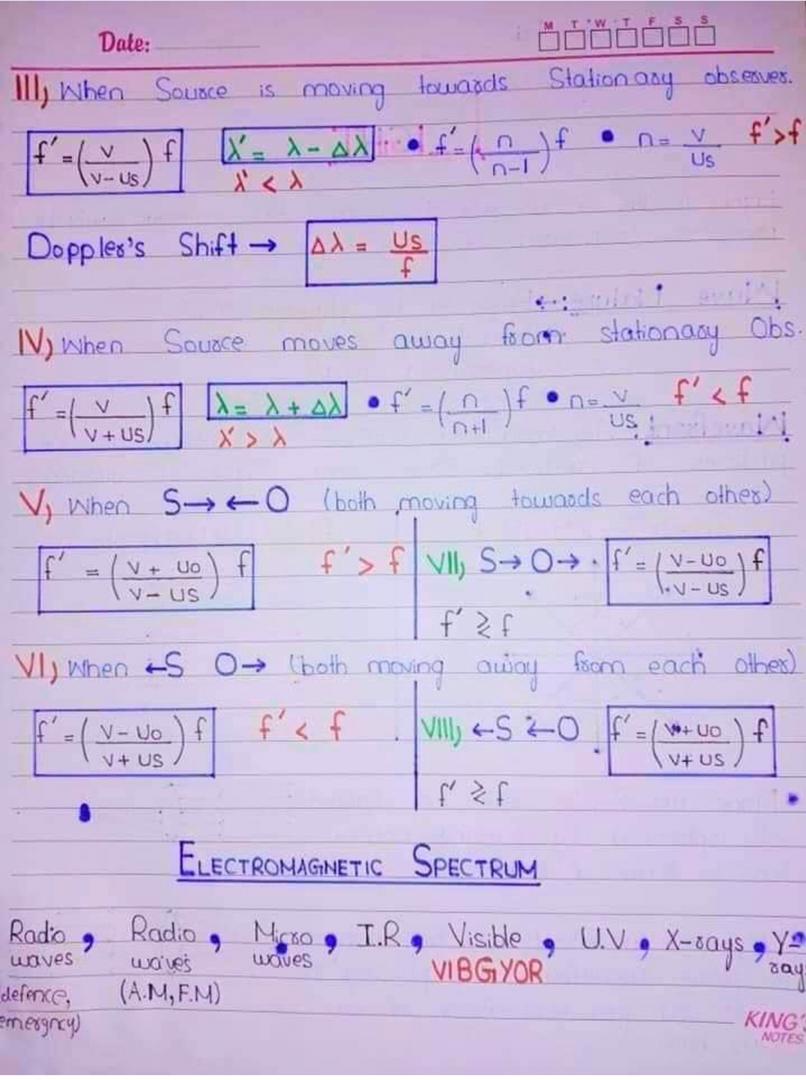 Date:
M T W T F S S
III) When Source is moving towards Stationary observer.
f' = (v / v - us) f   λ' = λ - Δλ • f' = (n / n-1) f • n = v / us   f' > f
λ' < λ
Doppler's Shift → Δλ = us / f
IV) When Source moves away from stationary Obs.
f' = (v / v + us) f   λ = λ + Δλ • f' = (n / n+1) f • n = v / us   f' < f
λ' > λ
V) When S→ ←O (both moving towards each other)
f' = (v + uo / v - us) f   f' > f   VII) S→ O→ • f' = (v - uo / v - us) f
f' ≷ f
VI) When ←S O→ (both moving away from each other)
f' = (v - uo / v + us) f   f' < f   VIII) ←S ←O f' = (v + uo / v + us) f
f' ≷ f
ELECTROMAGNETIC SPECTRUM
Radio, Radio, Micro, I.R, Visible, U.V, X-rays, γ-
waves waves waves VIBGYOR ray
defence, (A.M, F.M)
emergncy)
KING'
NOTES